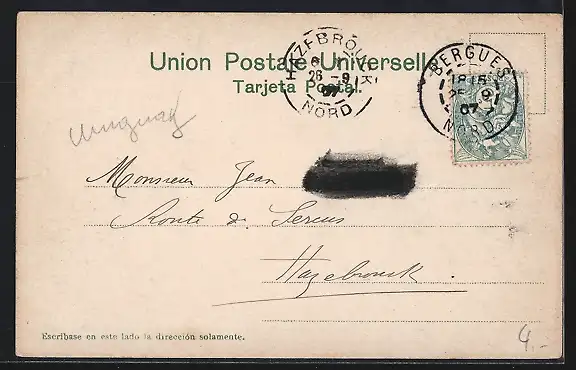 Union Postale Universelle
Tarjeta Postal.
HAZEBROUCK
26 -9
07
NORD
BERGUES
18 15
25 9
07
NORD
Uruguay
Monsieur Jean
Route de Sercus
Hazebrouck.
Escríbase en este lado la dirección solamente.
4.-